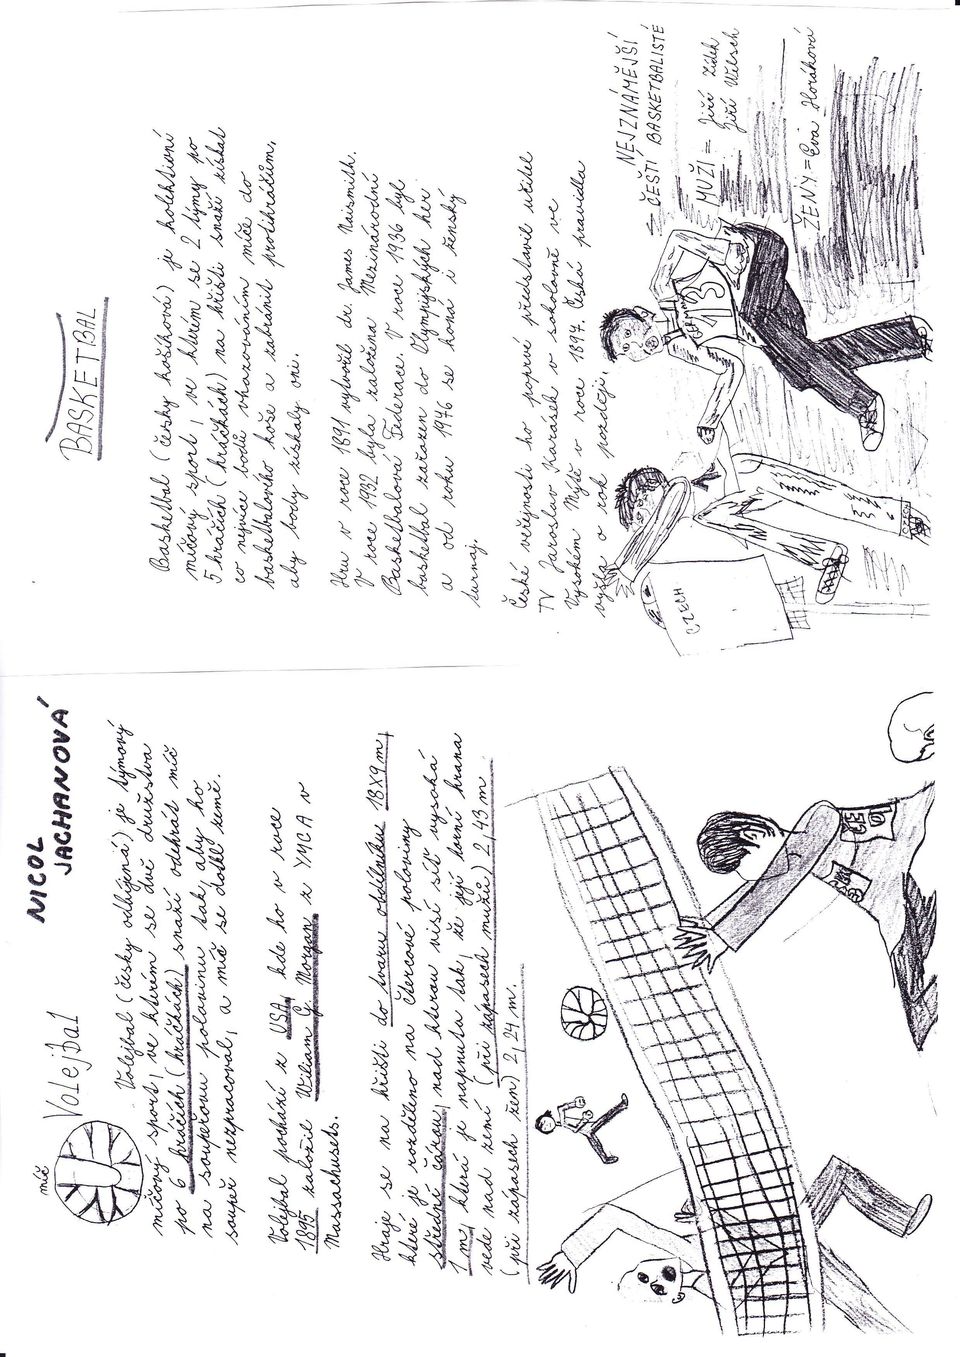 NICOL
JACHANOVÁ
míč
Volejbal
Volejbal (česky odbíjená) je týmový
míčový sport, ve kterém se dvě družstva
po 6 hráčích (hráčkách) snaží odehrát míč
na soupeřovu polovinu tak, aby ho
soupeř nezpracoval, a míč se dotkl země.
Volejbal pochází z USA, kde ho v roce
1895 založil Wiliam G. Morgan z YMCA v
Massachusets.
Hraje se na hřišti do tvaru obdélníku 18x9m,
které je rozděleno na čtercové poloviny
střední čárou, nad kterou visí síť vysoká
1m, která je napnuta tak, že její horní hrana
vede nad zemí (při zápasech mužů) 2,43 m
(při zápasech žen) 2,24 m.
BASKETBAL
Basketbal (česky košíková) je kolektivní
míčový sport, ve kterém se 2 týmy po
5 hráčích (hráčkách) na hřišti snaží získat
co nejvíce bodů vhazováním míče do
basketbalového koše a zabránit protihráčům,
aby body získaly oni.
Hru v roce 1891 vytvořil dr. James Naismith.
V roce 1932 byla založena Mezinárodní
Basketbalová Federace. V roce 1936 byl
basketbal zařazen do Olympijských her
a od roku 1976 se koná i ženský
turnaj.
České veřejnosti ho poprvé představil učitel
TV Jaroslav Karásek v sokolovně ve
Vysokém Mýtě v roce 1897. Česká pravidla
vyšla o rok později.
NEJZNÁMĚJŠÍ
ČEŠTÍ BASKETBALISTÉ
MUŽI = Jiří Zídek
Jiří Welsch
ŽENY = Eva Horáková
CZECH
13